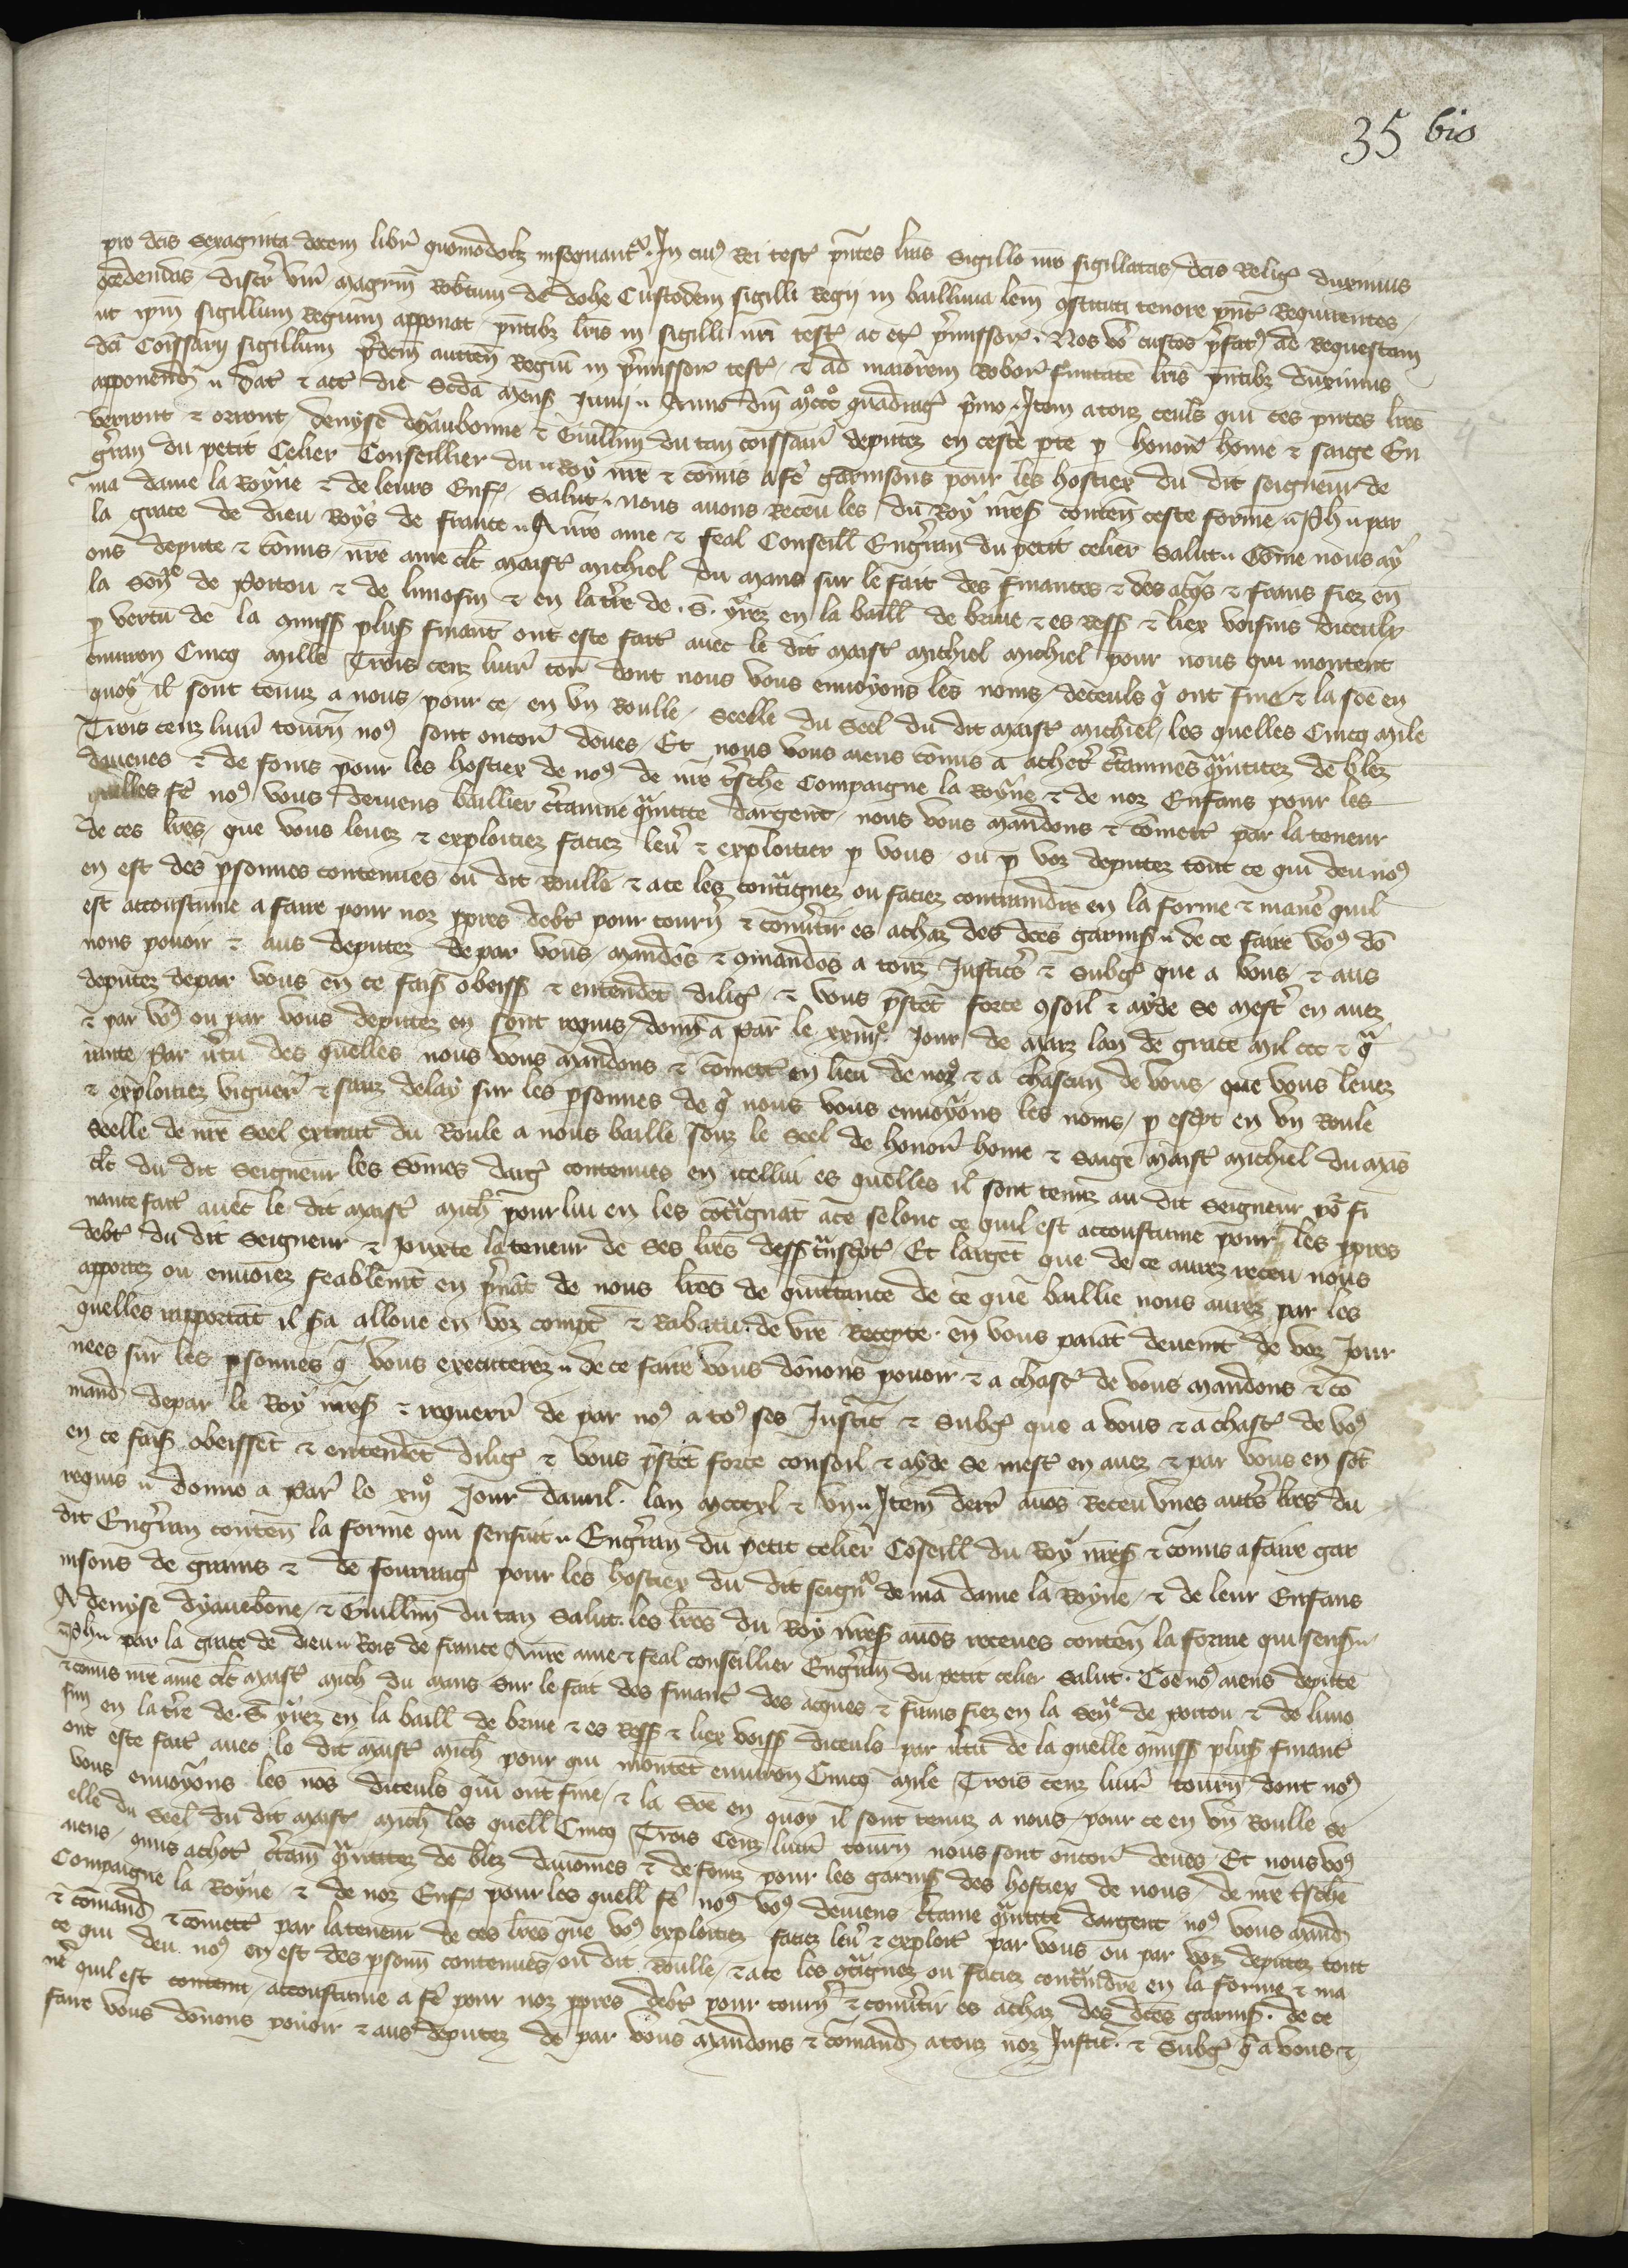 35 bis
pro dcis sexaginta decem libr quomodolz insequantr. In cuius Rei test pntes lras sigillo nro sigillatas dcis Religs duximus
concedendas discr vir magrm Robtum de dohe Custodem sigilli Regij in baillivia lem constituti tenore pnt Requirentes
ut ipm sigillum Regium apponat pntibz lris in sigilli nri test ac et pmissor. Nos vo custos pfatus ad Requestam
dci Comssarij sigillum pdcm auttem Regiu in pmissor test & ad maiorem Robor firmitate lris pntibz duximus
apponend. Dat & act die scda mens Junij. Anno dni mo ccco quadrag pmo. Item a touz ceuls qui ces pntes lres
verront & orront denyse dyaubonne & Guillm du tan comssair deputez en ceste pte p honor home & saige En
gran du petit Celier Conseillier du Roy nre & comis a fe garnisons pour les hostiex du dit seigneur de
ma dame la Royne & de leurs Enfs. Salut. nous avons Receu les du Roy nres conten ceste forme. Ph. par
la grace de dieu Roys de france. A nre ame & feal Conseill Engran du petit celier salut. Come nous ay
ons depute & comis nre ame clt maist michiel du mans sur le fait des finances & des acqs & frans fiez en
la senye de Poitou & de limosin & en la tre de .S. yrez en la baill de brive & es ress & liex voisins diceulx
p vertu de la qmiss plus finant ont este fait avec le dit maist michiel michiel pour nous qui montent
environ Cincq mille Trois cenz livr tor dont nous vous envoyons les noms deceuls q ont fine & la soe en
quoy il sont tenuz a nous pour ce en un Roulle seelle du seel du dit maist michiel, les quelles Cincq mile
Trois cenz livr tourn nous sont oncor deues. Et nous vous aiens comis a achetr ctaines qntitez de blez
davenes & de foins pour les hostiex de nous de nre tschie Compaigne la Royne & de noz Enfans pour les
quelles fe nous vous deviens baillier ctainne qntite dargent, nous vous mandons & comett par la teneur
de ces lres, que vous levez & exploitiez faciez lev & exploitier p vous ou p voz deputez tout ce qui deu nous
en est des psonnes contenues ou dit Roulle & a ce les contraignez ou faciez contraindre en la forme & manie quil
est accoustume a faire pour noz ppres debt pour tourn & convertir es achaz des dces garnis. de ce faire vous do
nons pouoir & aus deputez de par vous mandos & qmandos a touz Justics & subgs que a vous & aus
deputez depar vous en ce fais obeiss & entendet diligs & vous pstet force qsoil & ayde se mest en avez
& par vous ou par vous deputez en sont requis, donn a Par le xxiiije Jour de marz lan de grace mil ccc & qa
rante. Par vtu des quelles nous vous mandons & comett en lieu de nous & a chascun de vous, que vous levez
& exploitiez viguer & sanz delay sur les psonnes de q nous vous envoyons les noms, p escpt en un Roule
seelle de nre seel extrait du Roule a nous baille souz le seel de honor home & saige maist michiel du mans
clt du dit seigneur les somes dargs contenues en icellui es quelles il sont tenuz au dit seigneur por fi
nance fait avec le dit maist mich pour lui en les cotignat a ce selonc ce quil est accoustume pour les ppres
debt du dit seigneur & juxte la teneur de ses lres dess tnscpt. Et larget que de ce aurez receu nous
apportez ou envoiez feablemt en pnat de nous lres de quittance de ce que baillie nous aurez par les
quelles rapportat il sra alloue en voz compt & Rabatu de vre Recepte. en vous paiat deuemt de voz Jour
nees sur les psonnes q vous executerez. de ce faire vous donons pouoir & a chast de vous mandons & co
mand depar le Roy nres & requerr de par nous a tous ses Justic & subgs que a vous & a chast de vous
en ce fais obeissent & entendet diligs & vous pstet force conseil & ayde se mest en avez & par vous en sot
requis. donne a Par le xiijo Jour davril. lan mcccxl & un. Item derr avos Receu unes autres lres du
dit Engran conten la forme qui sensuit. Engran du petit celier Conseill du Roy nres & comis a faire gar
nisons de grains & de fourrags pour les hostiex du dit seignr de ma dame la Royne, & de leur Enfans
A denyse dyaubone, & Guillm du tan salut. les lres du Roy nres avos receues conten la forme qui sensu
Ph. par la grace de dieu Rois de france A nre ame & feal conseillier Engran du petit celier salut. Coe nous aiens depute
& comis nre ame clt maist mich du mans sur le fait des finant des acques & frans fiez en la seny de poitou & de limo
sin en la tre de .S. yrez en la baill de brive & es Ress & liex voiss diceuls par vtu de la quelle qmiss plus finant
ont este fait avec le dit maist mich pour qui montet environ Cincq mile Trois cenz livr tourn dont nous
vous envoyons les nos diceuls qui ont fine, & la soe en quoy il sont tenuz a nous pour ce en un Roulle se
elle du seel du dit maist mich les quell Cincq Trois Cenz livr tourn nous sont oncor deues. Et nous vous
aiens qmis achet ctain qntitez de blez davoines & de foinz pour les garnis des hostiex de nous de nre tschie
Compaigne la Royne & de noz Enfs pour les quell fe nous vous deviens ctaine qntite dargent nous vous mand
& comand & comett par la teneur de ces lres que vous exploitiez faciez lev & exploit par vous ou par voz deputez tout
ce qui deu nous en est des psonn contenues ou dit Roulle, & a ce les qtignez ou faciez contindre en la forme & ma
nie quil est content accoustume a fe pour noz ppres debt pour tourn & convtir es achaz des dces garnis. de ce
faire vous donons pouoir & aus deputez de par vous mandons & comand a touz noz Justic & subgs q a vous &